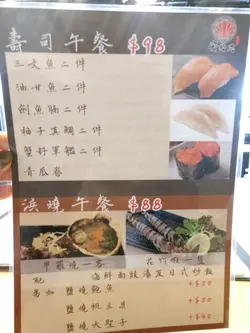 壽司午餐 $98
三文魚二件
油甘魚二件
劍魚腩二件
柚子真鯛二件
蟹籽軍艦二件
青瓜卷
浜燒午餐 $88
甲羅燒一客
花竹蝦一隻
配 海鮮面豉湯及日式炒飯
另加 鹽燒鮑魚
鹽燒帆立貝
鹽燒大聖子 +$40